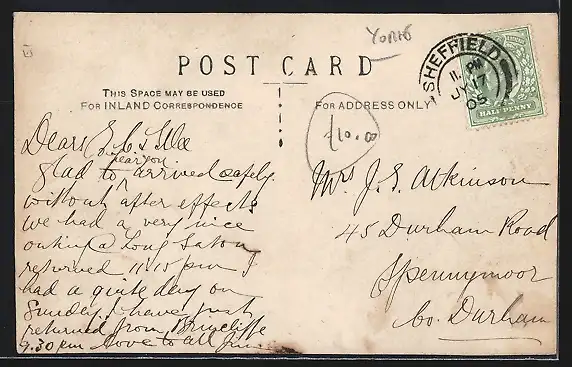 YORKS
POST CARD
THIS SPACE MAY BE USED
FOR INLAND CORRESPONDENCE
FOR ADDRESS ONLY
SHEFFIELD
11. PM
JY 17
05
HALF PENNY
£10.00
Dears
glad to hear you arrived safely.
without after effects
we had a very nice
outing @ Long Eaton
returned 11.15 pm I
had a quite day on
Sunday, I have just
returned from Brincliffe
9.30 pm Love to all
Mrs J. G. Atkinson
45 Durham Road
Spennymoor
Co. Durham